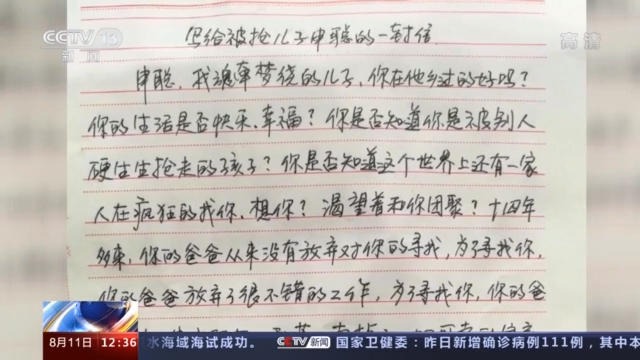 CCTV 13
新闻
高清
写给被抢儿子申聪的一封信
申聪，我魂牵梦绕的儿子，你在他乡过的好吗？
你的生活是否快乐、幸福？你是否知道你是被别人
硬生生抢走的孩子？你是否知道这个世界上还有一家
人在疯狂的找你、想你？渴望着和你团聚？十四年
多来，你的爸爸从来没有放弃对你的寻找，为了寻找你，
你的爸爸放弃了很不错的工作，为了寻找你，你的爸
8月11日 12:36
水海域海试成功。 CCTV新闻 国家卫健委：昨日新增确诊病例111例，其中本